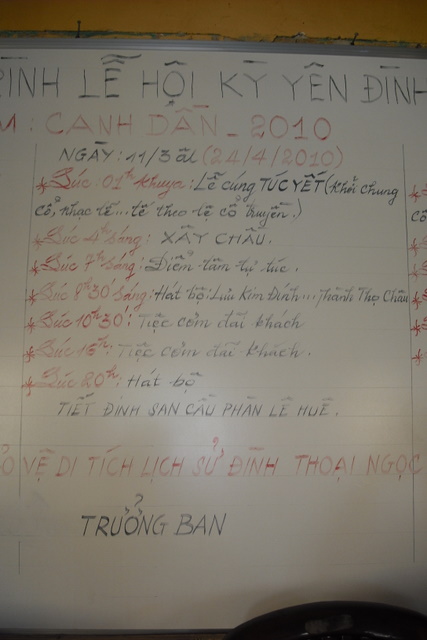 RÌNH LỄ HỘI KỲ YÊN ĐÌNH
M: CANH DẦN - 2010
NGÀY: 11/3 âl (24/4/2010)
Lúc: 01h khuya: Lễ cúng TÚC YẾT (Khởi chung
cổ, nhạc tế... tế theo lệ cổ truyền.)
Lúc 4h sáng: XÂY CHẦU.
Lúc 7h sáng: Điểm tâm tự túc.
Lúc 8h30 sáng: Hát bộ: Lưu Kim Đính... Thành Thọ Châu
Lúc 10h30: Tiệc cơm đãi khách
Lúc 16h: Tiệc cơm đãi khách.
Lúc 20h: Hát bộ
TIẾT ĐINH SAN CẦU PHÀN LÊ HUÊ.
ẢO VỆ DI TÍCH LỊCH SỬ ĐÌNH THOẠI NGỌC
TRƯỞNG BAN